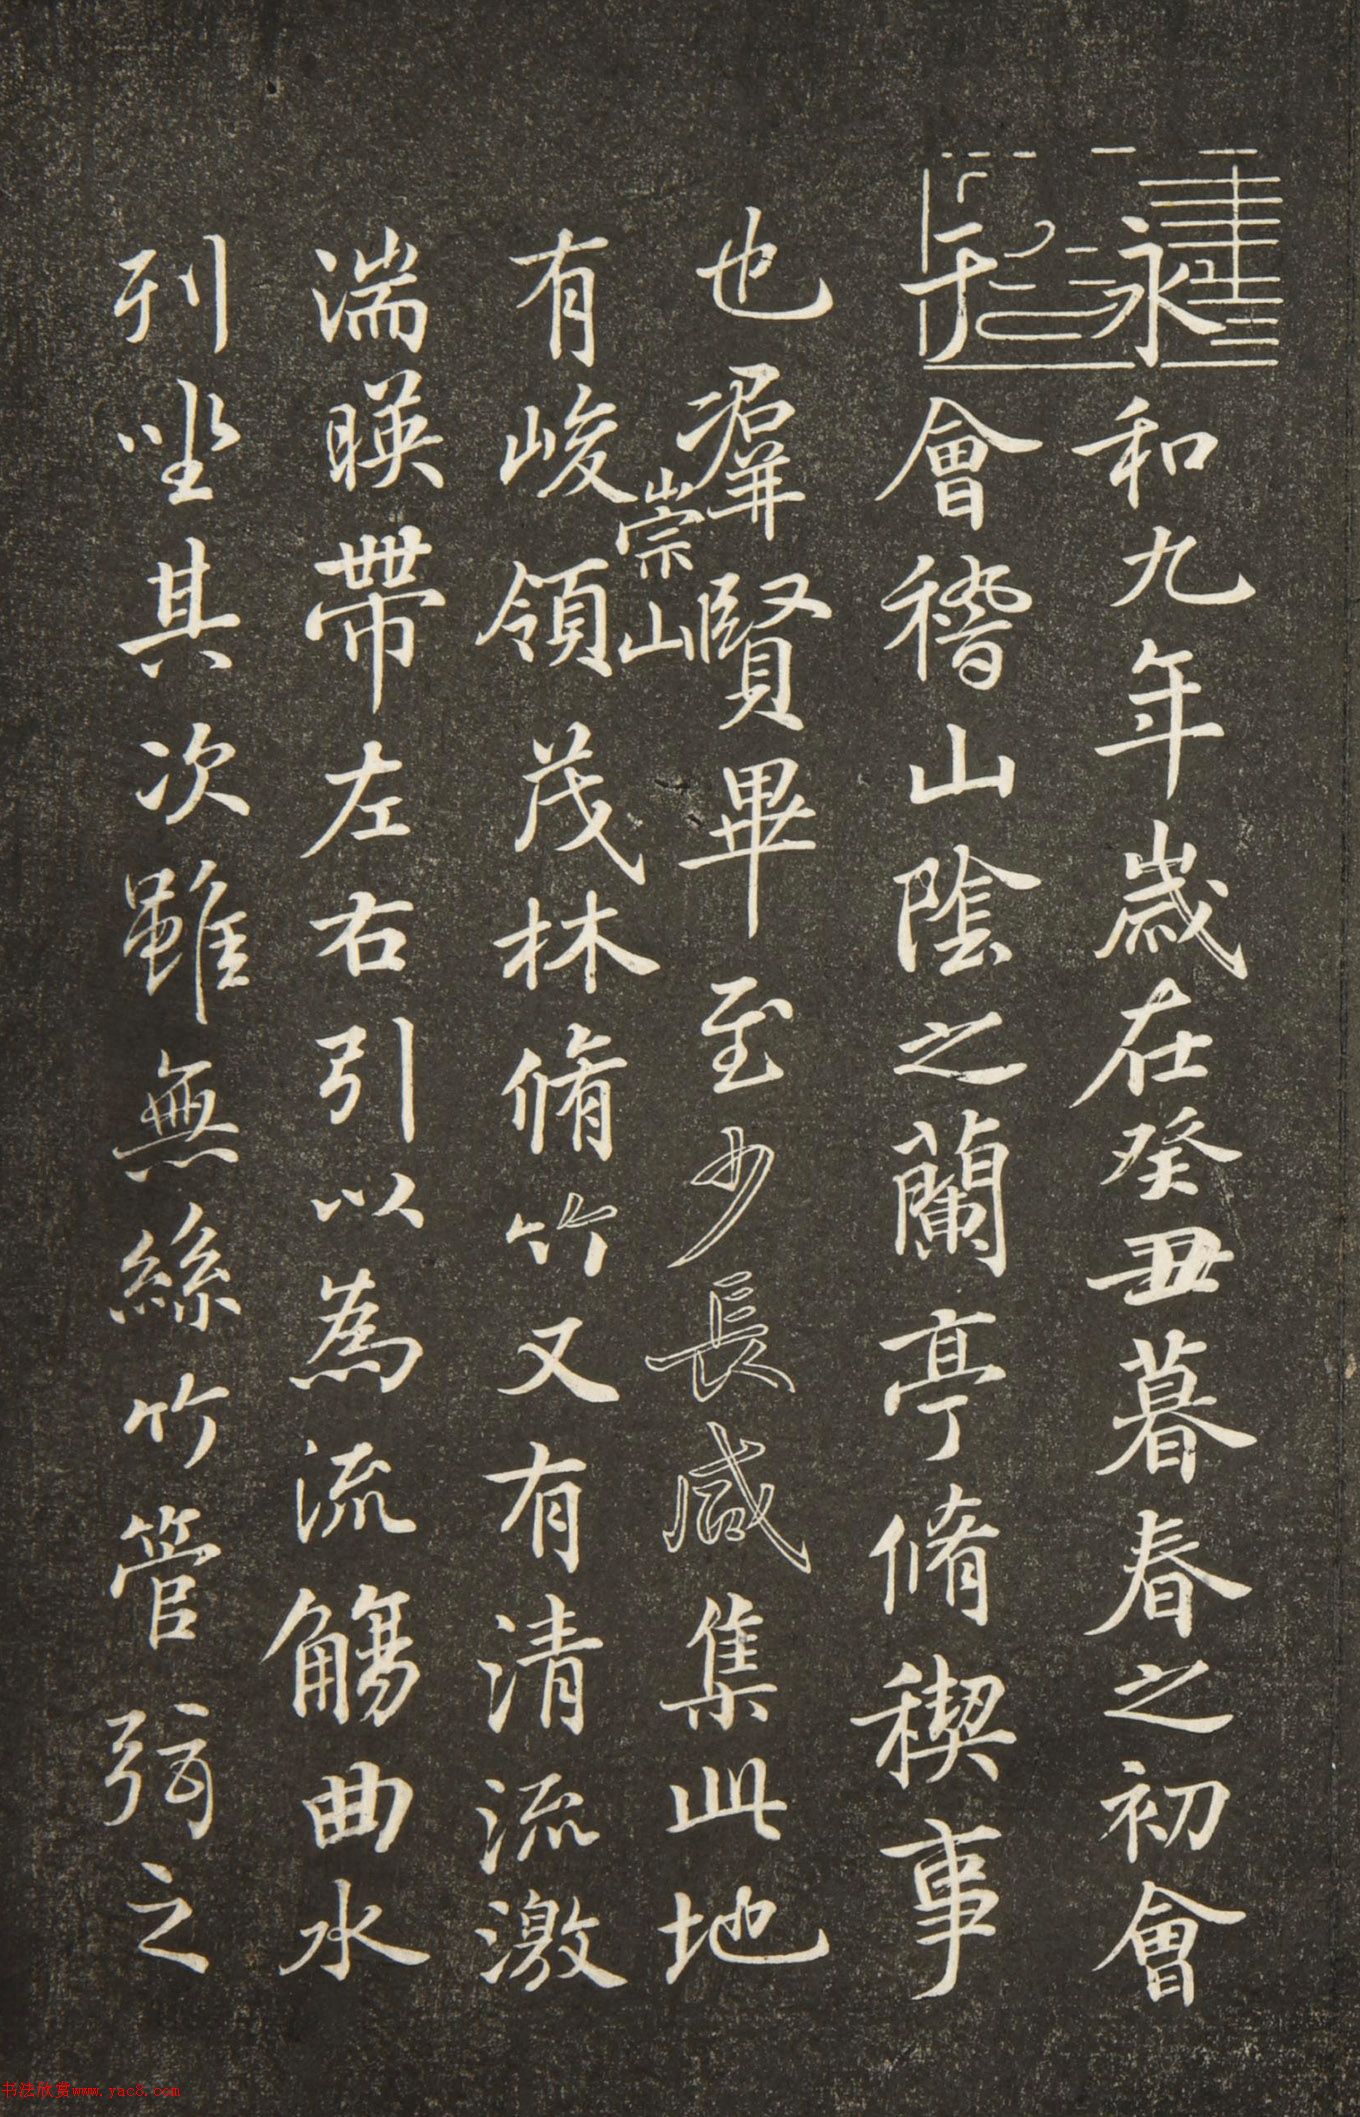 永和九年歲在癸丑暮春之初會
于會稽山陰之蘭亭脩稧事
也羣賢畢至少長咸集此地
崇山
有峻領茂林脩竹又有清流激
湍暎帶左右引以為流觴曲水
列坐其次雖無絲竹管弦之
书法欣赏www.yac8.com